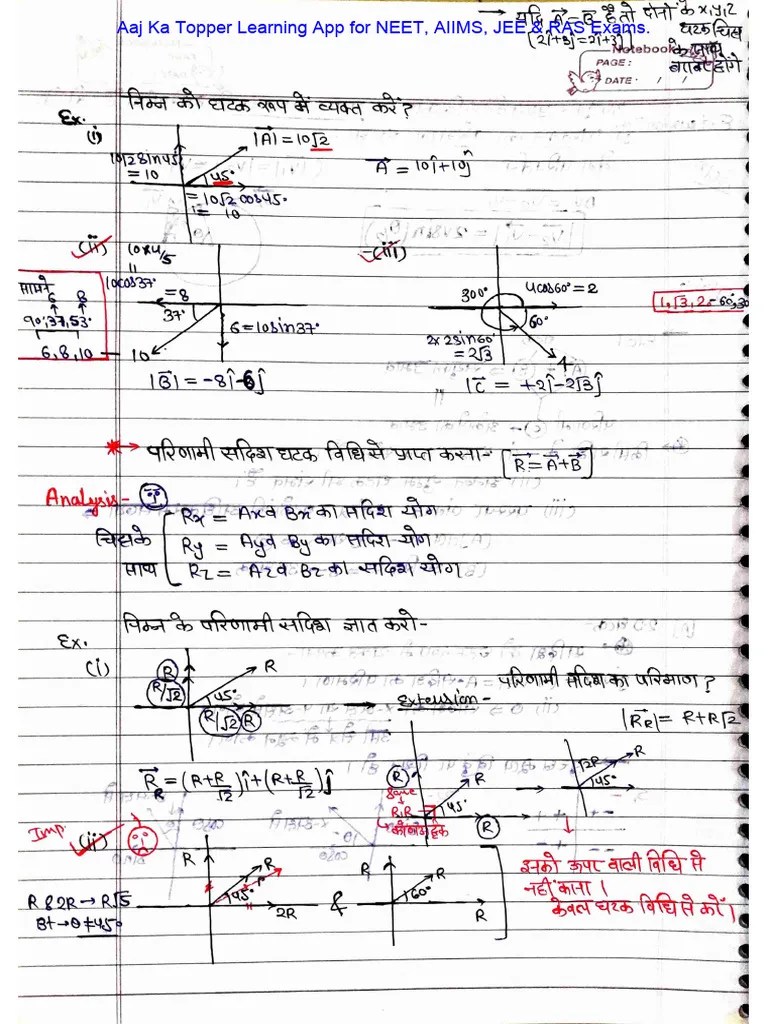 Aaj Ka Topper Learning App for NEET, AIIMS, JEE & RAS Exams.
→ यदि A⃗ = B⃗ है तो दोनों के x,y,z
घटक चिह्न
के साथ
बराबर होंगे
Notebook
PAGE:
DATE: / /
निम्न को घटक रूप में व्यक्त करें?
Ex.
(i)
|A⃗| = 10√2
10√2 sin45
= 10
45°
= 10√2 cos45°
= 10
A⃗ = 10î+10ĵ
(ii)
10×4/5
||
10cos37°
= 8
37°
6 = 10sin37°
10
|B⃗| = -8î-6ĵ
सामने
6 8
90°,37,53°
6,8,10
(iii)
300°
4cos60° = 2
60°
2×2sin60°
= 2√3
4
|C⃗ = +2î-2√3ĵ
1,√3,2
* → परिणामी सदिश घटक विधि से प्राप्त करना- [R⃗ = A⃗+B⃗]
Analysis-
चिह्न के
साथ
Rx = Ax व Bx का सदिश योग
Ry = Ay व By का सदिश योग
Rz = Az व Bz का सदिश योग
निम्न के परिणामी सदिश ज्ञात करो-
Ex.
(i)
R
R/√2
R
45°
R/√2 R
→ Extension -
परिणामी सदिश का परिमाण?
|R⃗R| = R+R√2
R⃗R = (R+R/√2)î+(R+R/√2)ĵ
R
Same
R,R
R
45°
R
→
√2R
R
45°
Imp
(ii)
R
R
45°
2R
&
R
R
60°
R
R & 2R → R√5
Bt → θ ≠ 45°
इनको ऊपर वाली विधि से
नहीं करना।
केवल घटक विधि से करें।